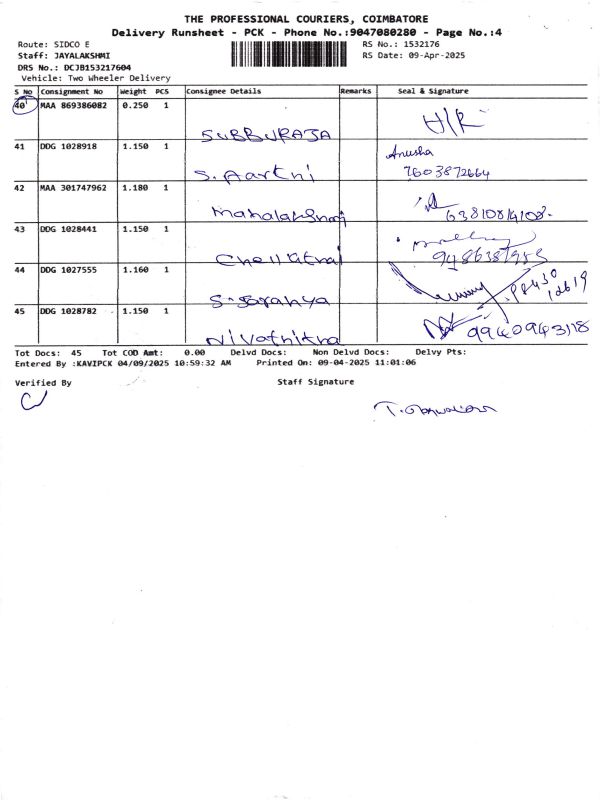 THE PROFESSIONAL COURIERS, COIMBATORE
Delivery Runsheet - PCK - Phone No.:9047080280 - Page No.:4
Route: SIDCO E RS No.: 1532176
Staff: JAYALAKSHMI RS Date: 09-Apr-2025
DRS No.: DCJB153217604
Vehicle: Two Wheeler Delivery
S No Consignment No Weight PCS Consignee Details Remarks Seal & Signature
40 MAA 869386082 0.250 1 SUBBURAJA H/R
41 DDG 1028918 1.150 1 S. Aarthi Anusha
7603872664
42 MAA 301747962 1.180 1 Mahalakshmi
43 DDG 1028441 1.150 1
44 DDG 1027555 1.160 1
45 DDG 1028782 1.150 1 Nivathitha 9940943118
Tot Docs: 45 Tot COD Amt: 0.00 Delvd Docs: Non Delvd Docs: Delvy Pts:
Entered By :KAVIPCK 04/09/2025 10:59:32 AM Printed On: 09-04-2025 11:01:06
Verified By Staff Signature